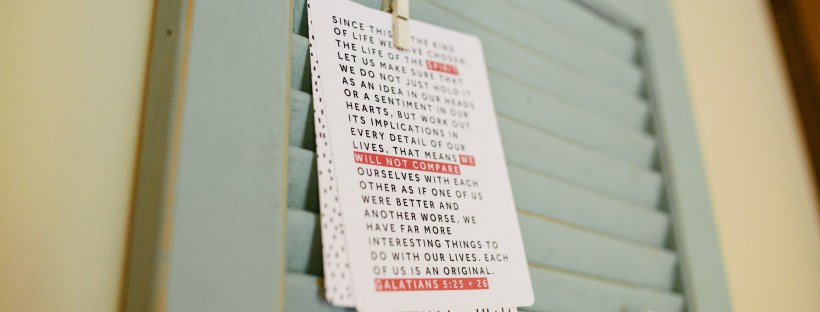 SINCE THIS THE KIND
OF LIFE WE HAVE CHOSEN,
THE LIFE OF THE SPIRIT,
LET US MAKE SURE THAT
WE DO NOT JUST HOLD IT
AS AN IDEA IN OUR HEADS
OR A SENTIMENT IN OUR
HEARTS, BUT WORK OUT
ITS IMPLICATIONS IN
EVERY DETAIL OF OUR
LIVES. THAT MEANS WE
WILL NOT COMPARE
OURSELVES WITH EACH
OTHER AS IF ONE OF US
WERE BETTER AND
ANOTHER WORSE. WE
HAVE FAR MORE
INTERESTING THINGS TO
DO WITH OUR LIVES. EACH
OF US IS AN ORIGINAL.
GALATIANS 5:25 + 26